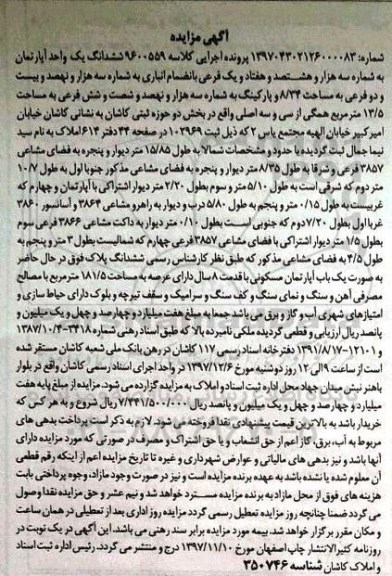 آگهی مزایده
شماره: ۱۳۹۷۰۴۳۰۲۱۲۶۰۰۰۰۸۳ پرونده اجرایی کلاسه ۹۶۰۰۵۵۹ ششدانگ یک واحد آپارتمان
به شماره سه هزار و هشتصد و هفتاد و یک فرعی بانضمام انباری به شماره سه هزار و نهصد و بیست
و دو فرعی به مساحت ۸/۳۴ و پارکینگ به شماره سه هزار و نهصد و شصت و شش فرعی به مساحت
۱۳/۵ مترمربع همگی از سی و سه اصلی واقع در بخش دو حوزه ثبتی کاشان به نشانی کاشان خیابان
امیرکبیر خیابان الهیه مجتمع یاس ۲ که ذیل ثبت ۱۰۲۹۶۹ در صفحه ۴۴ دفتر ۶۱۴ املاک به نام سید
نیما جمال ثبت گردیده با حدود و مشخصات شمالا به طول ۱۵/۸۵ متر دیوار و پنجره به فضای مشاعی
۳۸۵۷ فرعی و شرقا به طول ۸/۳۵ متر دیوار و پنجره به فضای مشاعی مذکور جنوبا اول به طول ۱۰/۷
متر دوم که شرقی است به طول ۵/۱۰ متر و سوم بطول ۲/۲۰ متر دیوار اشتراکی با آپارتمان و چهارم که
غربیست به طول ۰/۱۵ متر و پنجم به طول ۵/۸۰ درب و دیوار به راهرو مشاعی ۳۸۶۴ و آسانسور ۳۸۶۰
غربا اول بطول ۷/۲۰ دوم که جنوبی است بطول ۰/۱۰ متر دیوار به داکت مشاعی ۳۸۶۶ فرعی سوم
بطول ۱/۵ متر دیوار اشتراکی با فضای مشاعی ۳۸۵۷ فرعی چهارم که شمالیست بطول ۳ متر و پنجم به
طول ۴/۵ به فضای مشاعی مذکور که طبق نظر کارشناس رسمی ششدانگ پلاک فوق در حال حاضر
به صورت یک باب آپارتمان مسکونی با قدمت ۸ سال دارای عرصه به مساحت ۱۸۱/۵ مترمربع با مصالح
مصرفی آهن و سنگ و نمای سنگ و کف سنگ و سرامیک و سقف تیرچه و بلوک دارای حیاط سازی و
امتیازهای شهری آب و گاز و برق می باشد جمعا به مبلغ هفت میلیارد و چهارصد و چهل و یک میلیون و
پانصد ریال ارزیابی و قطعی گردیده ملکی نامبرده بالا که طبق اسناد رهنی شماره ۳۴۱۸-۱۳۸۷/۱۰/۴
و ۱۲۱۰۱-۱۳۹۱/۸/۱۷ دفترخانه اسناد رسمی ۱۱۷ کاشان در رهن بانک ملی شعبه کاشان مستقر شده
است از ساعت ۹ الی ۱۲ روز دوشنبه مورخ ۱۳۹۷/۱۲/۶ در واحد اجرای اسناد رسمی کاشان واقع در بلوار
باهنر نبش میدان جهاد محل اداره ثبت اسناد و املاک به مزایده گزارده می شود. مزایده از مبلغ پایه هفت
میلیارد و چهارصد و چهل و یک میلیون و پانصد ریال ۷/۴۴۱/۵۰۰/۰۰۰ ریال شروع و به هر کس که
خریدار باشد به بالاترین قیمت پیشنهادی نقدا فروخته می شود. لازم به ذکر است پرداخت بدهی های
مربوط به آب، برق، گاز اعم از حق انشعاب و یا حق اشتراک و مصرف در صورتی که مورد مزایده دارای
آنها باشد و نیز بدهی های مالیاتی و عوارض شهرداری و غیره تا تاریخ مزایده اعم از اینکه رقم قطعی
آن معلوم شده یا نشده باشد به عهده برنده مزایده است و نیز در صورت وجود مازاد، وجوه پرداختی بابت
هزینه های فوق از محل مازاد به برنده مزایده مسترد خواهد شد و نیم عشر و حق مزایده نقدا وصول
می گردد ضمنا چنانچه روز مزایده تعطیل رسمی گردد مزایده روز اداری بعد از تعطیلی در همان ساعت
و مکان مقرر برگزار خواهد شد. بیمه مورد مزایده برابر سند رهنی می باشد. این آگهی در یک نوبت در
روزنامه کثیرالانتشار چاپ اصفهان مورخ ۱۳۹۷/۱۱/۱۰ درج و منتشر می گردد. رئیس اداره ثبت اسناد
و املاک کاشان شناسه ۳۵۰۷۴۶